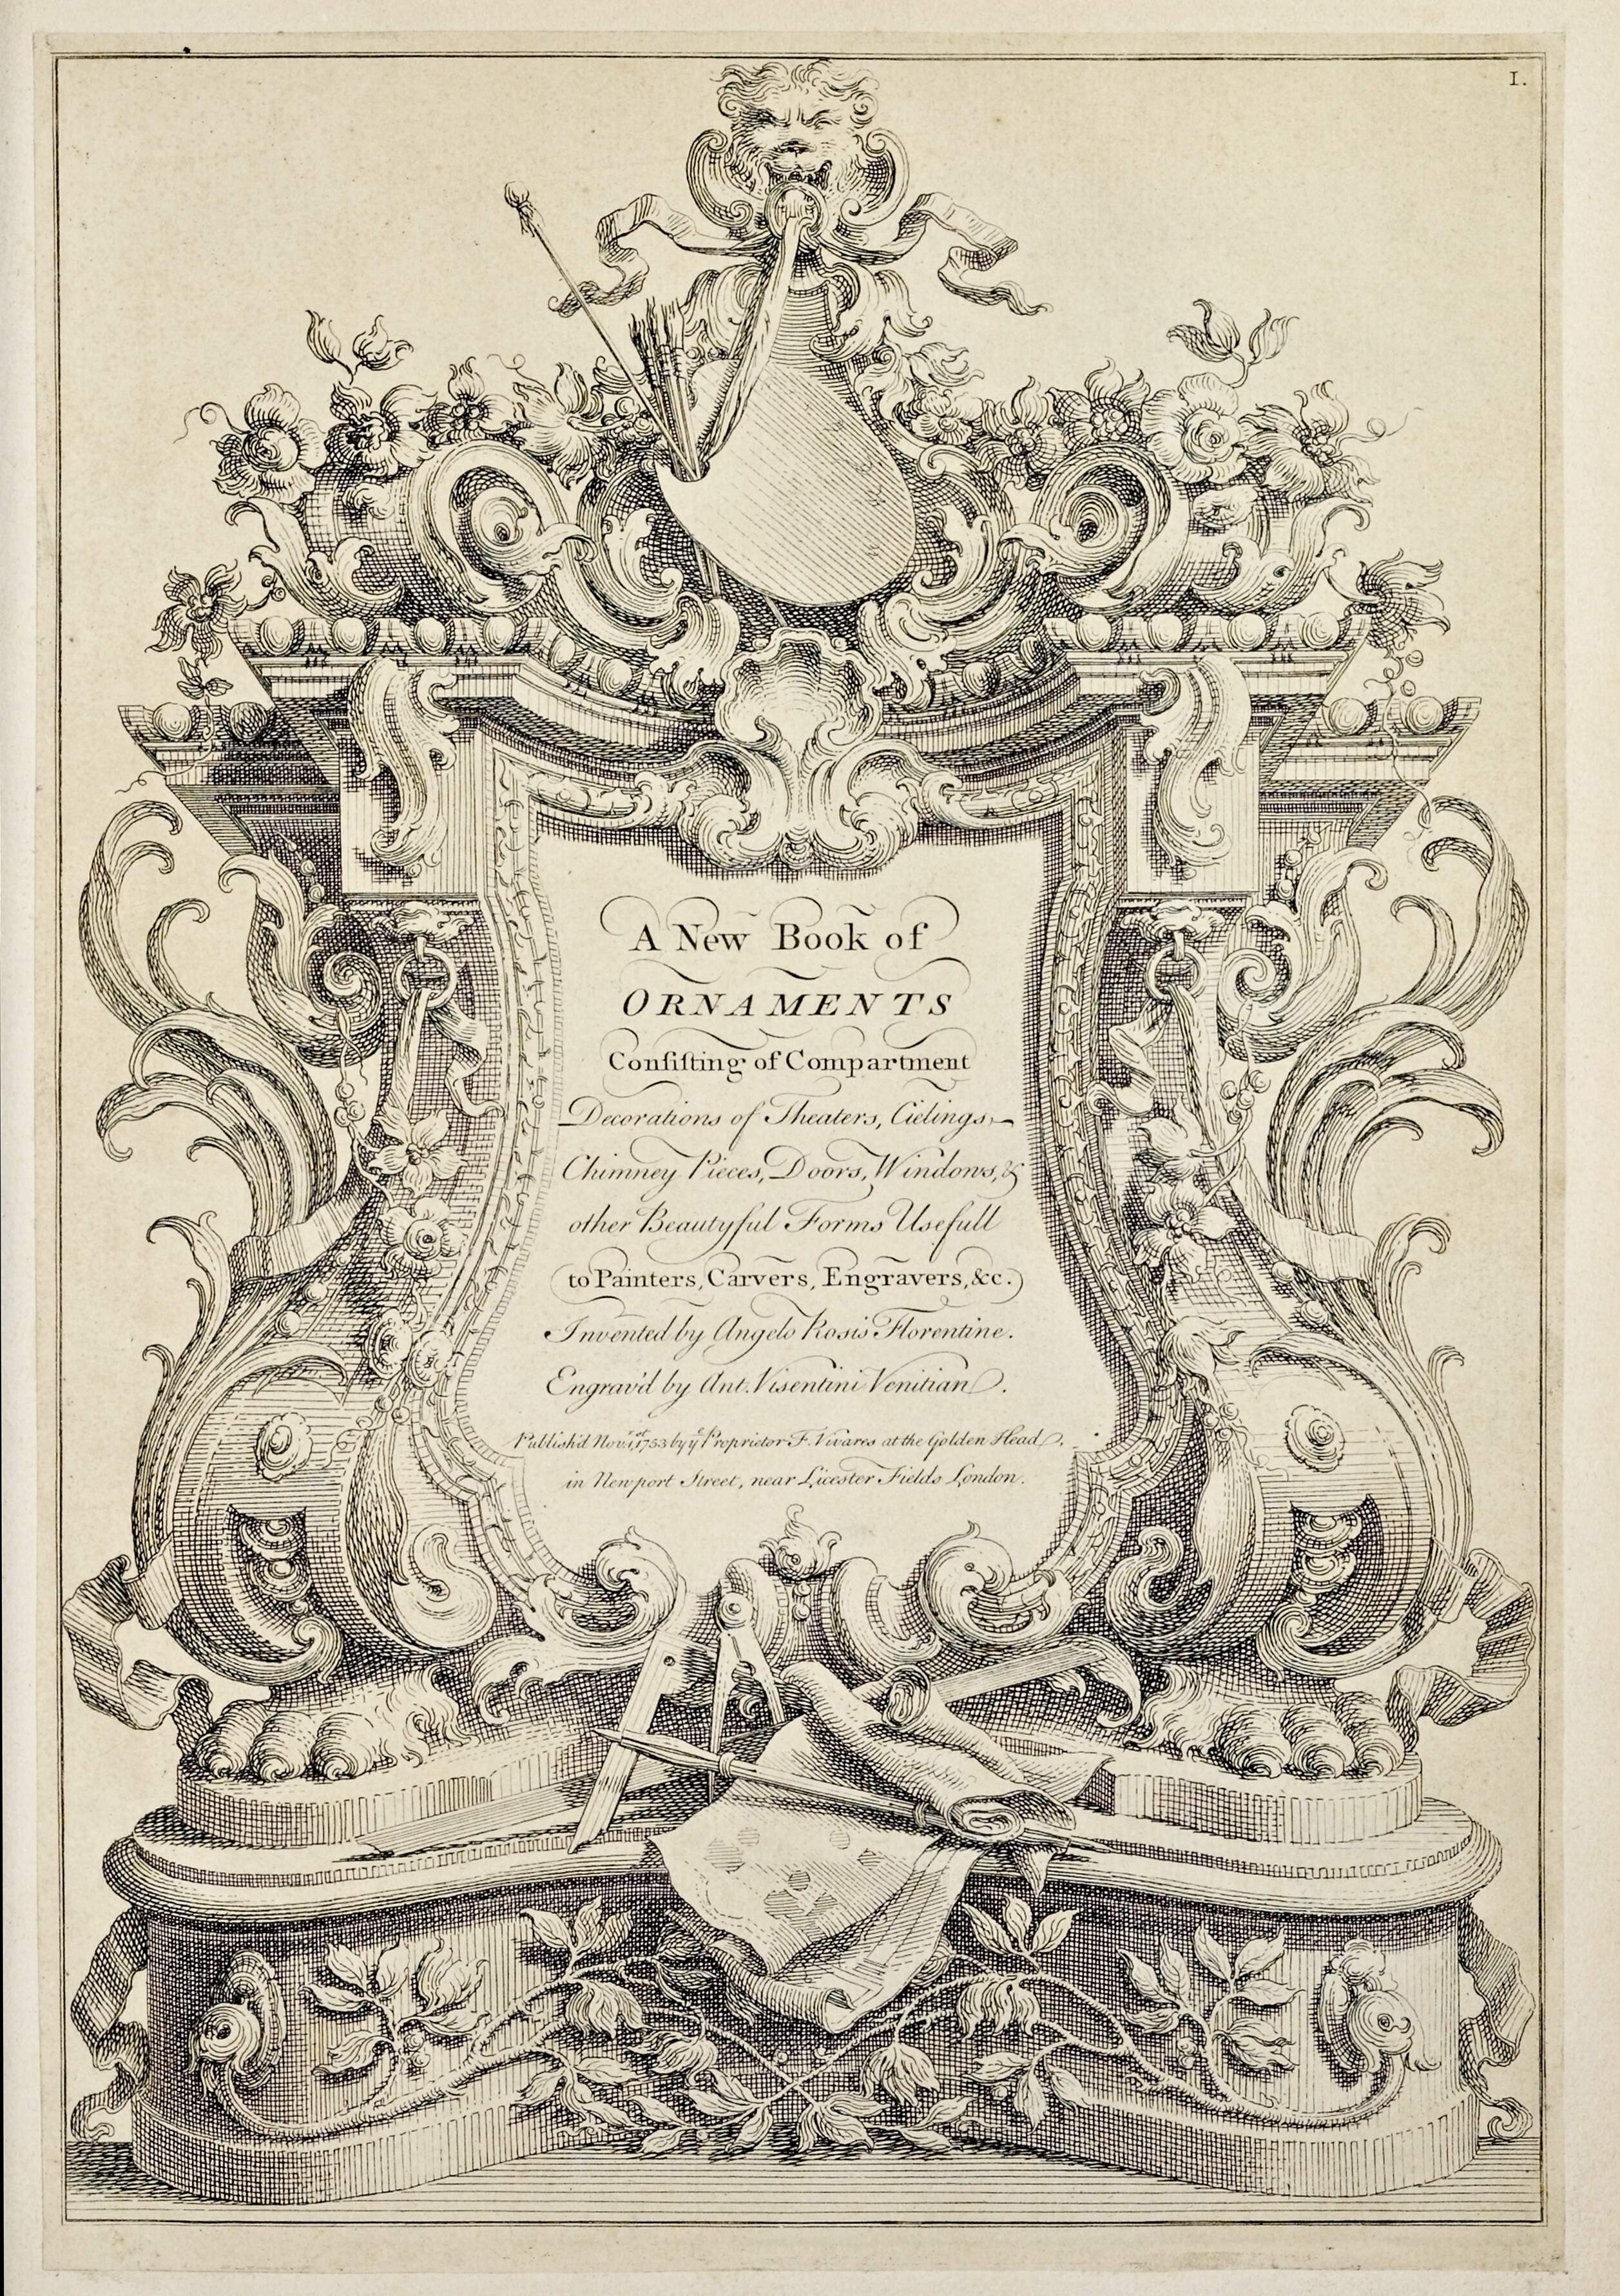 I.
A New Book of
ORNAMENTS
Conſiſting of Compartment
Decorations of Theaters, Cielings,
Chimney Pieces, Doors, Windows, &
other Beautyful Forms Usefull
to Painters, Carvers, Engravers, &c.
Invented by Angelo Rosis Florentine.
Engrav'd by Ant. Visentini Venitian.
Publish'd Nov. 1st, 1753 by ye Proprietor F. Vivares at the Golden Head,
in Newport Street, near Licester Fields London.